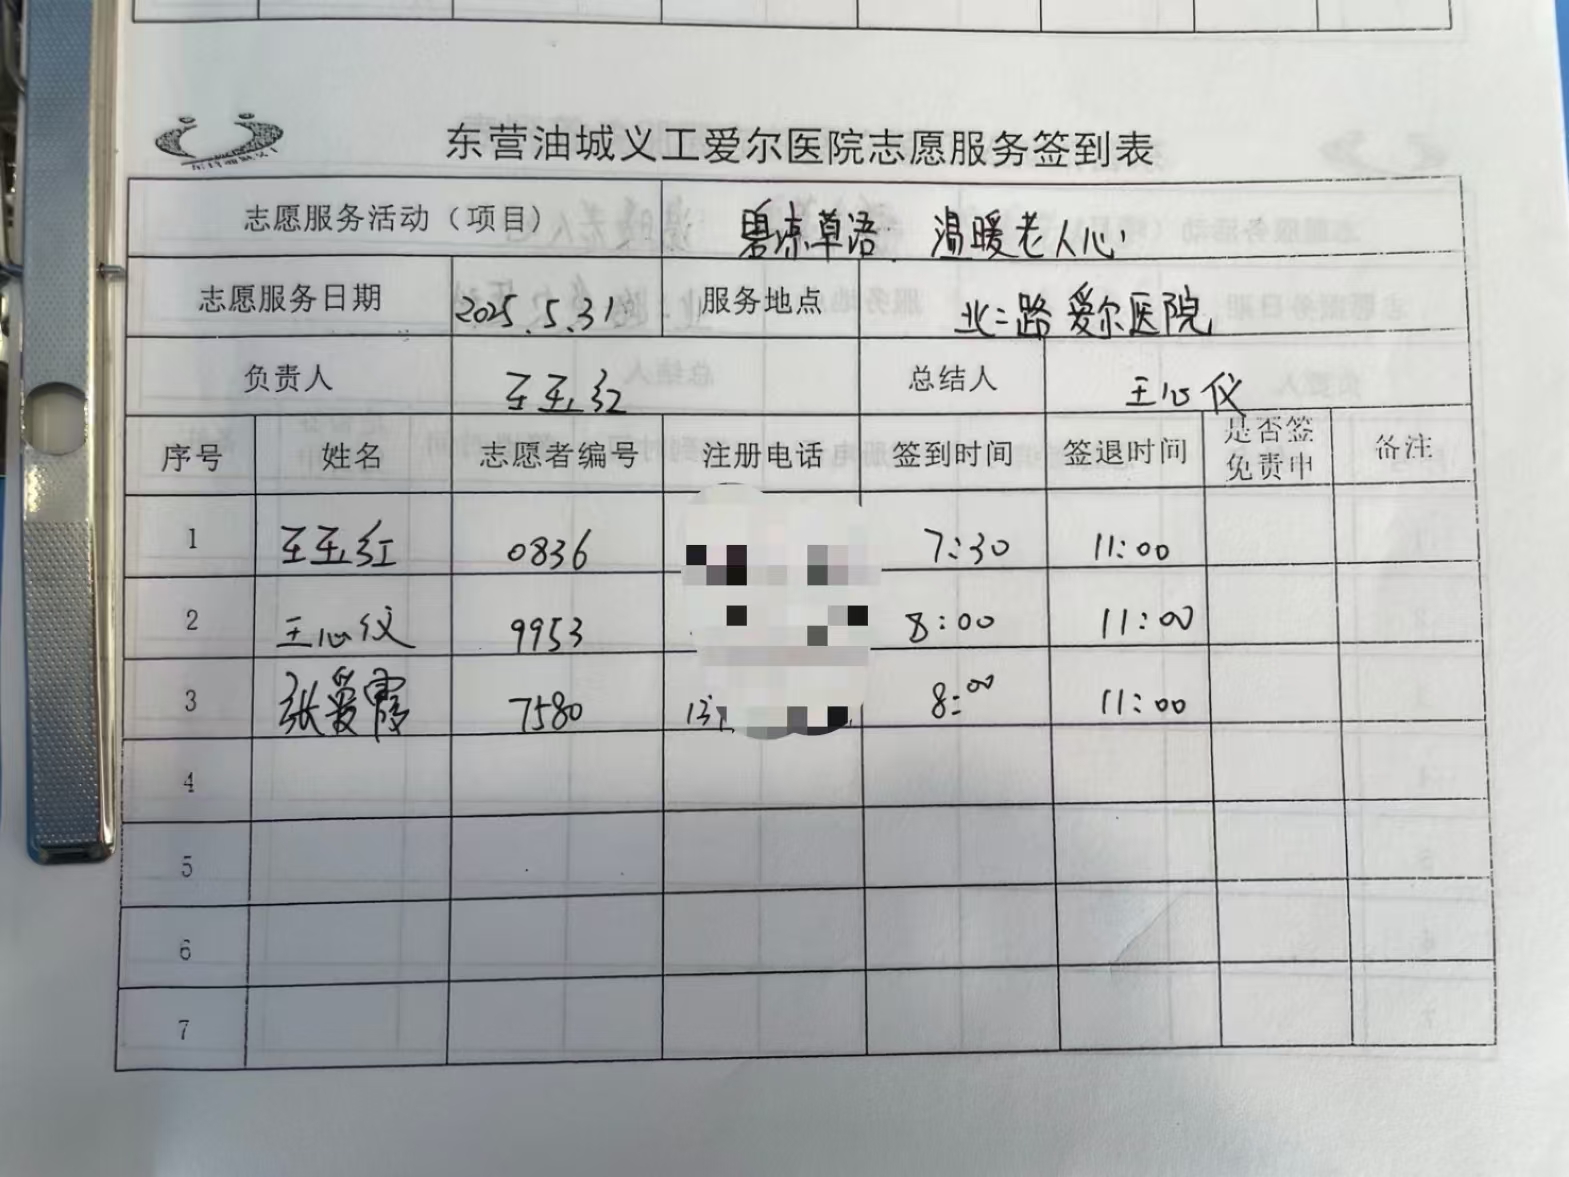 东营油城义工爱尔医院志愿服务签到表
志愿服务活动（项目） 碧凉草语 温暖老人心
志愿服务日期 2025.5.31 服务地点 北二路爱尔医院
负责人 王玉红 总结人 王心仪
序号 姓名 志愿者编号 注册电话 签到时间 签退时间 是否签免责申 备注
1 王玉红 0836 7:30 11:00
2 王心仪 9953 8:00 11:00
3 张爱霞 7580 8:00 11:00
4
5
6
7